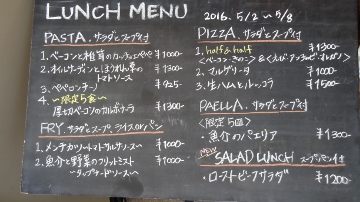 LUNCH MENU
2016. 5/2 〜 5/8
PASTA. サラダとスープ付
1. ベーコンと椎茸の
¥1000-
2. オイルサーディンとほうれん草の
トマトソース
¥1300-
3. ペペロンチーノ
¥925-
4. 〜限定5食〜
厚切ベーコンのカルボナーラ
¥1300-
FRY. サラダとスープ、ライスorパン
1. メンチカツ トマトサルサソース〜
¥1000-
2. 魚介と野菜のフリットミスト
〜タップナードソース〜
¥1000-
PIZZA. サラダとスープ付
1. half & half
¥1300-
2. マルゲリータ
¥1000-
3. 生ハムとルーコラ
¥1300-
PAELLA. サラダ、スープ付
〈限定5皿〉
・魚介のパエリア
¥1300-
NEW SALAD LUNCH スープ、パン付
・ローストビーフサラダ
¥1200-